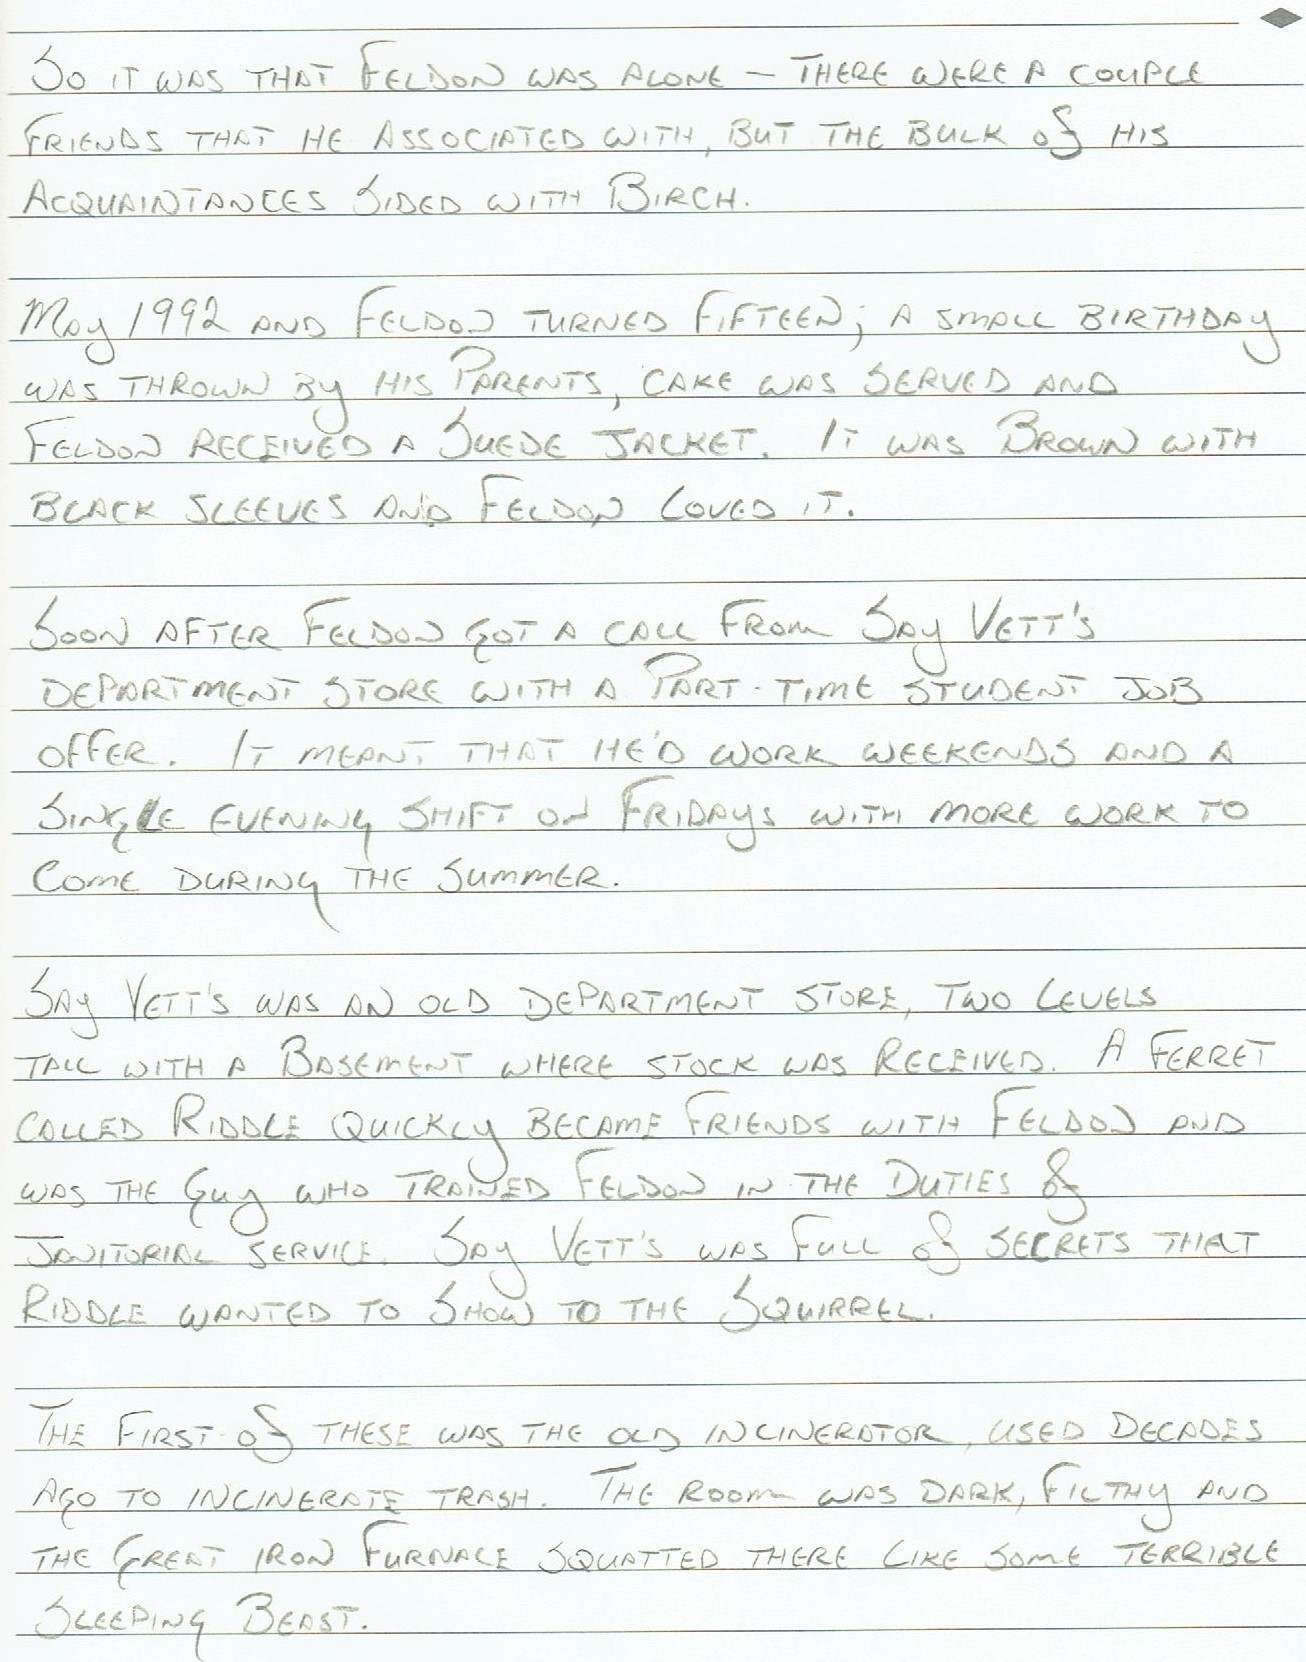 So it was that Feldon was alone – there were a couple
friends that he associated with, but the bulk of his
acquaintances sided with Birch.
May 1992 and Feldon turned fifteen; a small birthday
was thrown by his parents, cake was served and
Feldon received a suede jacket. It was brown with
black sleeves and Feldon loved it.
Soon after Feldon got a call from Say Vett's
department store with a part-time student job
offer. It meant that he'd work weekends and a
single evening shift on Fridays with more work to
come during the summer.
Say Vett's was an old department store, two levels
tall with a basement where stock was received. A ferret
called Riddle quickly became friends with Feldon and
was the guy who trained Feldon in the duties of
janitorial service. Say Vett's was full of secrets that
Riddle wanted to show to the squirrel.
The first of these was the old incinerator, used decades
ago to incinerate trash. The room was dark, filthy and
the great iron furnace squatted there like some terrible
sleeping beast.